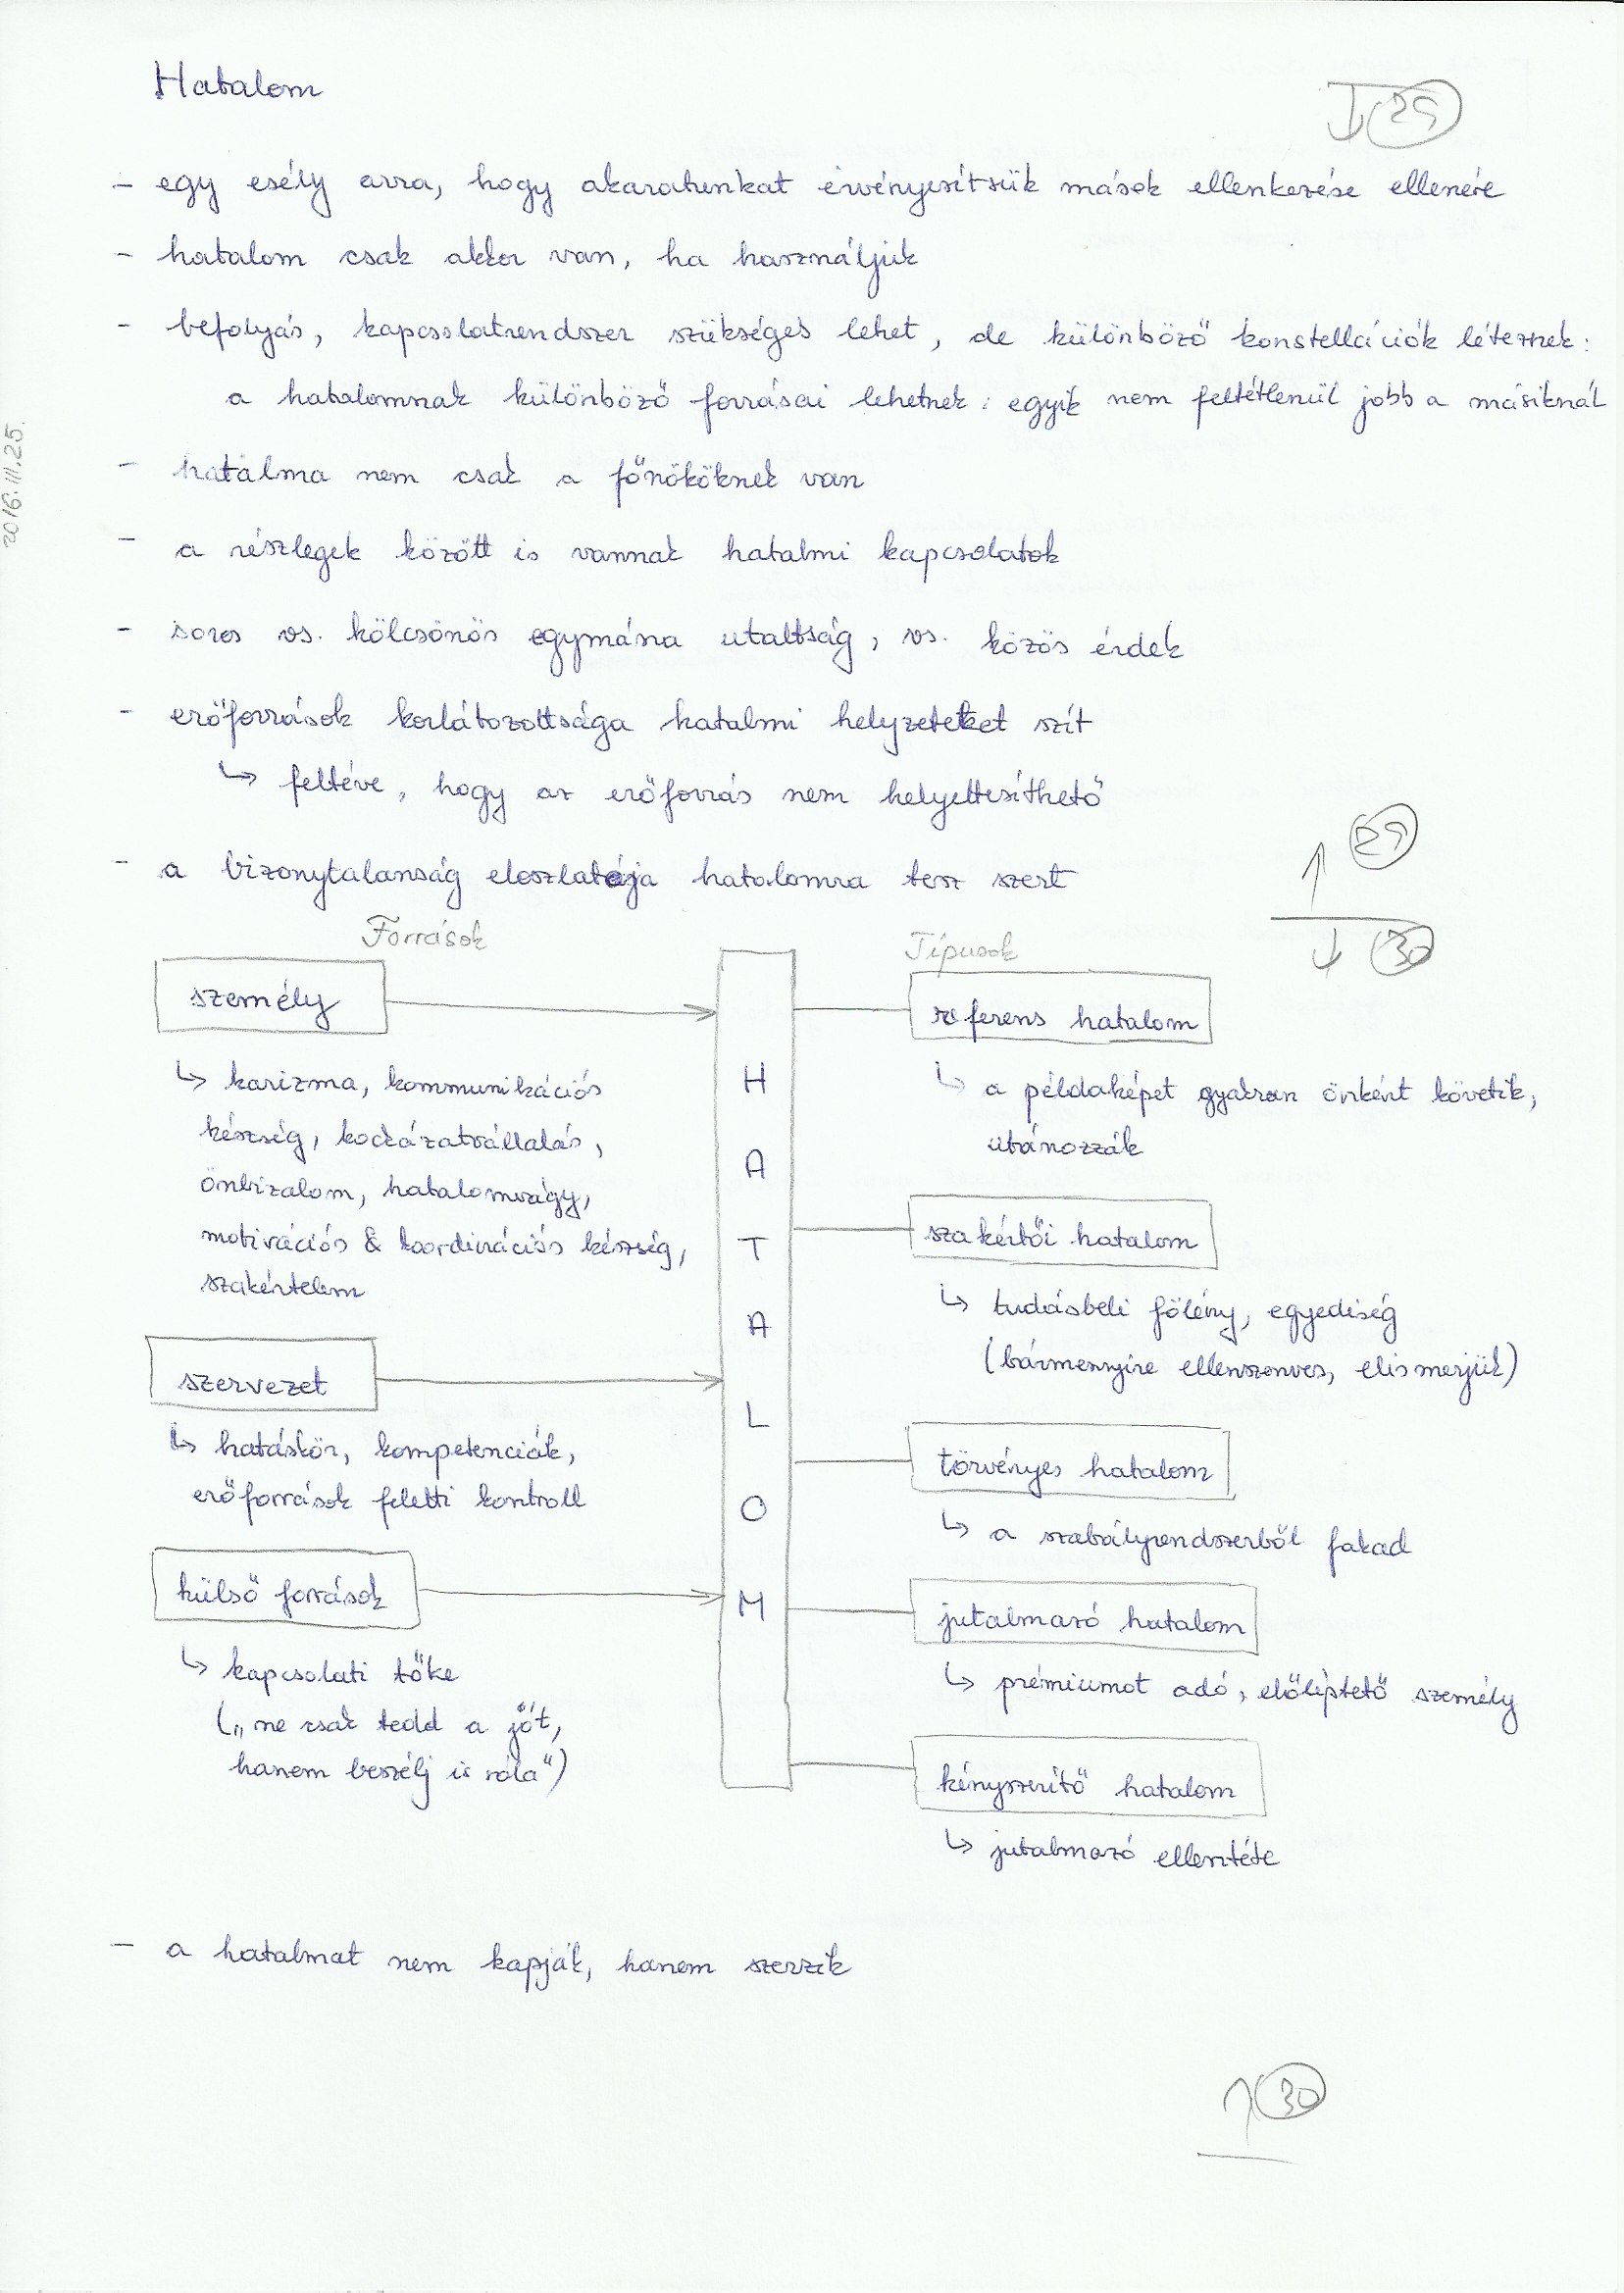 Hatalom
↓ 29
- egy esély arra, hogy akaratunkat érvényesítsük mások ellenkezése ellenére
- hatalom csak akkor van, ha használjuk
- befolyás, kapcsolatrendszer szükséges lehet, de különböző konstellációk léteznek:
a hatalomnak különböző forrásai lehetnek: egyik nem feltétlenül jobb a másiknál
2016.III.25.
- hatalma nem csak a főnököknek van
- a részlegek között is vannak hatalmi kapcsolatok
- soros vs. kölcsönös egymásra utaltság, vs. közös érdek
- erőforrások korlátozottsága hatalmi helyzeteket szít
↳ feltéve, hogy az erőforrás nem helyettesíthető
- a bizonytalanság eloszlatója hatalomra tesz szert
↑ 29
↓ 30
Források
személy
↳ karizma, kommunikációs
készség, kockázatvállalás,
önbizalom, hatalomvágy,
motivációs & koordinációs készség,
szakértelem
szervezet
↳ hatáskör, kompetenciák,
erőforrások feletti kontroll
külső források
↳ kapcsolati tőke
(„ne csak tedd a jót,
hanem beszélj is róla")
H
A
T
A
L
O
M
Típusok
referens hatalom
↳ a példaképet gyakran önként követik,
utánozzák
szakértői hatalom
↳ tudásbeli fölény, egyediség
(bármennyire ellenszenves, elismerjük)
törvényes hatalom
↳ a szabályrendszerből fakad
jutalmazó hatalom
↳ prémiumot adó, előléptető személy
kényszerítő hatalom
↳ jutalmazó ellentéte
- a hatalmat nem kapják, hanem szerzik
↑ 30